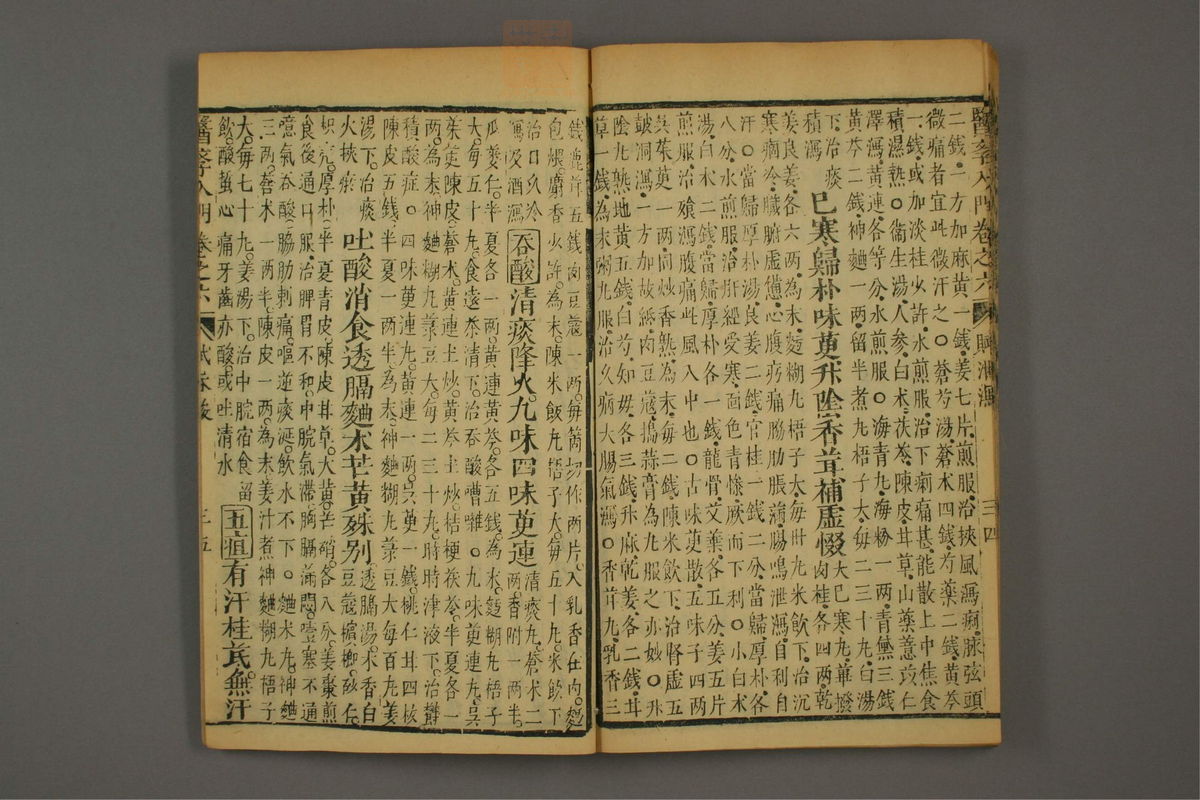 醫學入門卷之六 賦 泄瀉 三四
二錢一方加麻黃一錢姜七片煎服治挾風瀉痢脉弦頭
微痛者宜此微汗之○蒼芍湯蒼朮四錢芍藥二錢黃芩
一錢或加淡桂少許水煎服治下痢痛甚能散上中焦食
積濕熱○衞生湯人參白朮茯苓陳皮甘草山藥薏苡仁
澤瀉黃連各等分水煎服○海青丸海粉一兩青黛三錢
黃芩二錢神麯一兩留半煮丸梧子大每二三十丸白湯
下治痰
積瀉
巳寒歸朴味萸升陰香茸補虛惙
大巳寒丸蓽撥
肉桂各四兩乾
姜良姜各六兩為末麪糊丸梧子大每卅丸米飲下治沉
寒痼冷臟腑虛憊心腹㽲痛脇肋脹滿腸鳴泄瀉自利自
汗○當歸厚朴湯良姜二錢官桂一錢二分當歸厚朴各
八分水煎服治肝經受寒面色青慘厥而下利○小白朮
湯白朮二錢當歸厚朴各一錢龍骨艾葉各五分姜五片
煎服治飧瀉腹痛此風入中也○古味萸散五味子四兩
吳茱萸一兩同炒香熟為末每二錢陳米飲下治腎虛五
鼓洞瀉一方加故紙肉豆蔻搗蒜膏為丸服之亦妙○升
陰丸熟地黃五錢白芍知母各三錢升麻乾姜各二錢甘
草一錢為末粥丸服治久病大腸氣瀉○香茸丸乳香三
錢鹿茸五錢肉豆蔻一兩每箇切作兩片入乳香在內麪
包煨麝香少許為末陳米飯丸梧子大每五十丸米飲下
治日久冷
瀉及酒瀉
吞酸 清痰降火九味四味萸連
清痰丸蒼朮二
兩香附一兩半
瓜蔞仁半夏各一兩黃連黃芩各五錢為末麪糊丸梧子
大每五十丸食遠茶清下治吞酸嘈雜○九味萸連丸吳
茱萸陳皮蒼朮黃連土炒黃芩土炒桔梗茯苓半夏各一
兩為末神麯糊丸菉豆大每二三十丸時時津液下治鬱
積酸症○四味萸連丸黃連一兩吳萸一錢桃仁廿四核
陳皮五錢半夏一兩半為末神麯糊丸菉豆大每百丸姜
湯下治痰
火挾瘀
吐酸消食透膈麯朮苦黃殊別
透膈湯木香白
豆蔻檳榔砂仁
枳殼厚朴半夏青皮陳皮甘草大黃芒硝各八分姜棗煎
食後通口服治脾胃不和中脘氣滯胸膈滿悶噎塞不通
噫氣吞酸脇肋刺痛嘔逆痰涎飲水不下○麯朮丸神麯
三兩蒼朮一兩半陳皮一兩為末姜汁煮神麯糊丸梧子
大每七十丸姜湯下治中脘宿食留
飲酸蜇心痛牙齒亦酸或吐清水
五疸 有汗桂芪無汗
醫學入門卷之六 賦 吞酸 三五